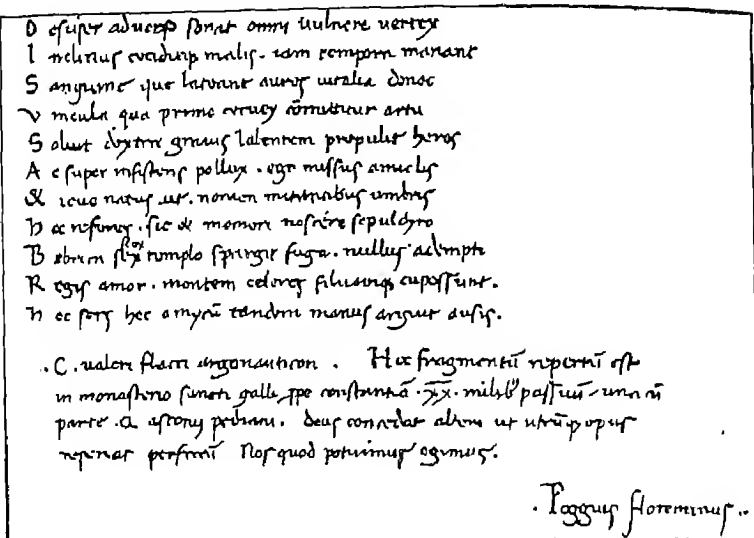 D esuper aduerso sonat omni uulnere uertex
I nclinus ceciditque malis. iam tempora manant
S anguine que latuant aures uitalia donec
V incula qua primo ceruex committitur artu
S oluit dextre grauis labentem propulit heros
A c super insistens pollux. ego missus amiclis
& ioue natus ait. nomen mirantibus umbris
h oc refures. sic & memori noscere sepulchro
B ebricas ferox templo spargit fuga. nullus adempti
R egis amor. montem celeres siluamque capessunt.
h ec sors hec amycum tandem manus arguit ausis.
. C. ualeri flacci argonauticon . Hoc fragmentū repertū est
in monasterio sancti galli ꝓpe constantiā . xx . milibꝰ passuū . una cū
parte . Q asconij pediani . deus concedat alteri ut utrūqꝫ opus
reperiat perfectū Nos quod potuimus egimus .
. Poggius florentinus ..